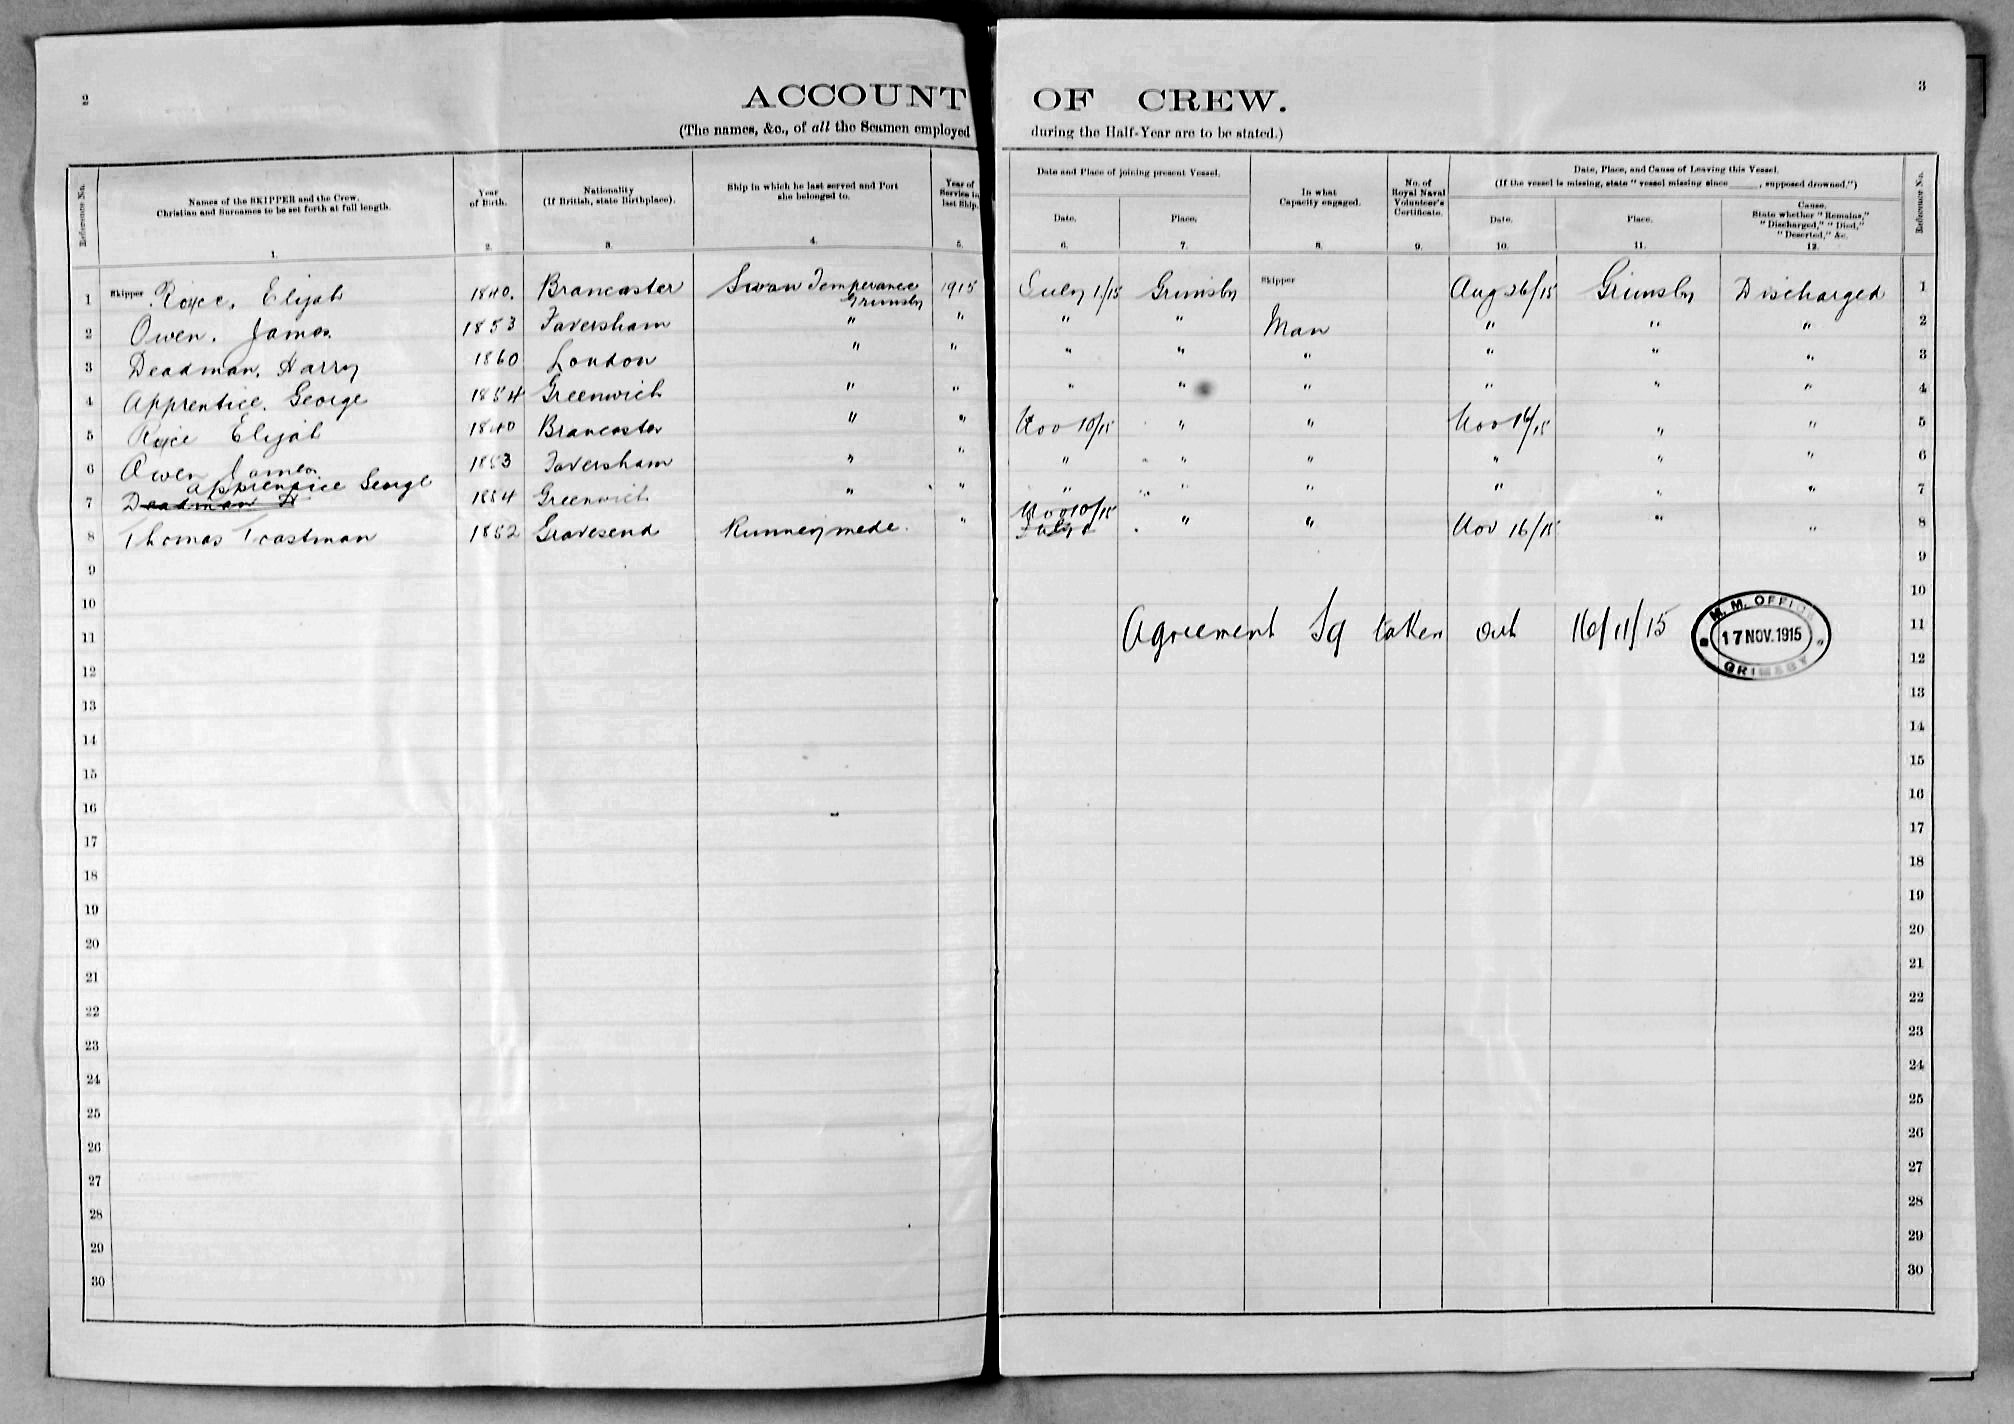 2
ACCOUNT OF CREW.
3
(The names, &c., of all the Seamen employed during the Half-Year are to be stated.)
Reference No.
Names of the SKIPPER and the Crew.
Christian and Surnames to be set forth at full length.
1.
Year of Birth.
2.
Nationality
(If British, state Birthplace).
3.
Ship in which he last served and Port she belonged to.
4.
Year of Service in last Ship.
5.
Date and Place of joining present Vessel.
Date.
6.
Place.
7.
In what Capacity engaged.
8.
No. of Royal Naval Volunteer's Certificate.
9.
Date, Place, and Cause of Leaving this Vessel.
(If the vessel is missing, state "vessel missing since ____, supposed drowned.")
Date.
10.
Place.
11.
Cause.
State whether "Remains," "Discharged," "Died," "Deserted," &c.
12.
Reference No.
1 Skipper Royce, Elijah 1840. Brancaster Swan Temperance Grimsby 1915 July 1/15 Grimsby Skipper Aug 26/15 Grimsby Discharged 1
2 Owen, James 1853 Faversham " " " " Man " " " 2
3 Deadman, Harry 1860 London " " " " " " " " 3
4 Apprentice, George 1854 Greenwich " " " " " " " " 4
5 Royce Elijah 1840 Brancaster " " Nov 10/15 " " Nov 16/15 " " 5
6 Owen James 1853 Faversham " " " " " " " " 6
7 Deadman H Apprentice George 1854 Greenwich " " " " " " " " 7
8 Thomas Trastman 1852 Gravesend Runneymede. " July 1 Nov 10/15 " " Nov 16/15 " " 8
9 9
10 10
11 Agreement Sq taken out 16/11/15 11
M. M. OFFICE
17 NOV. 1915
GRIMSBY
12 12
13 13
14 14
15 15
16 16
17 17
18 18
19 19
20 20
21 21
22 22
23 23
24 24
25 25
26 26
27 27
28 28
29 29
30 30